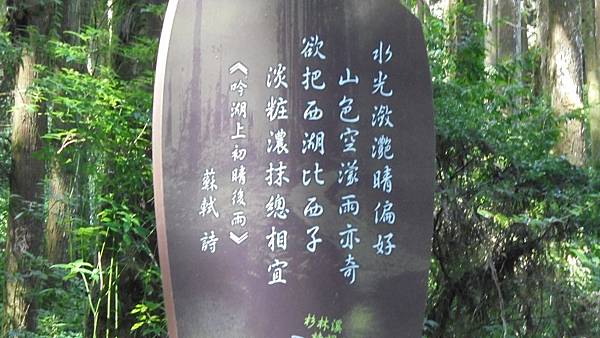 水光瀲灔晴偏好
山色空濛雨亦奇
欲把西湖比西子
淡粧濃抹總相宜
《吟湖上初晴後雨》
蘇軾 詩
杉林溪